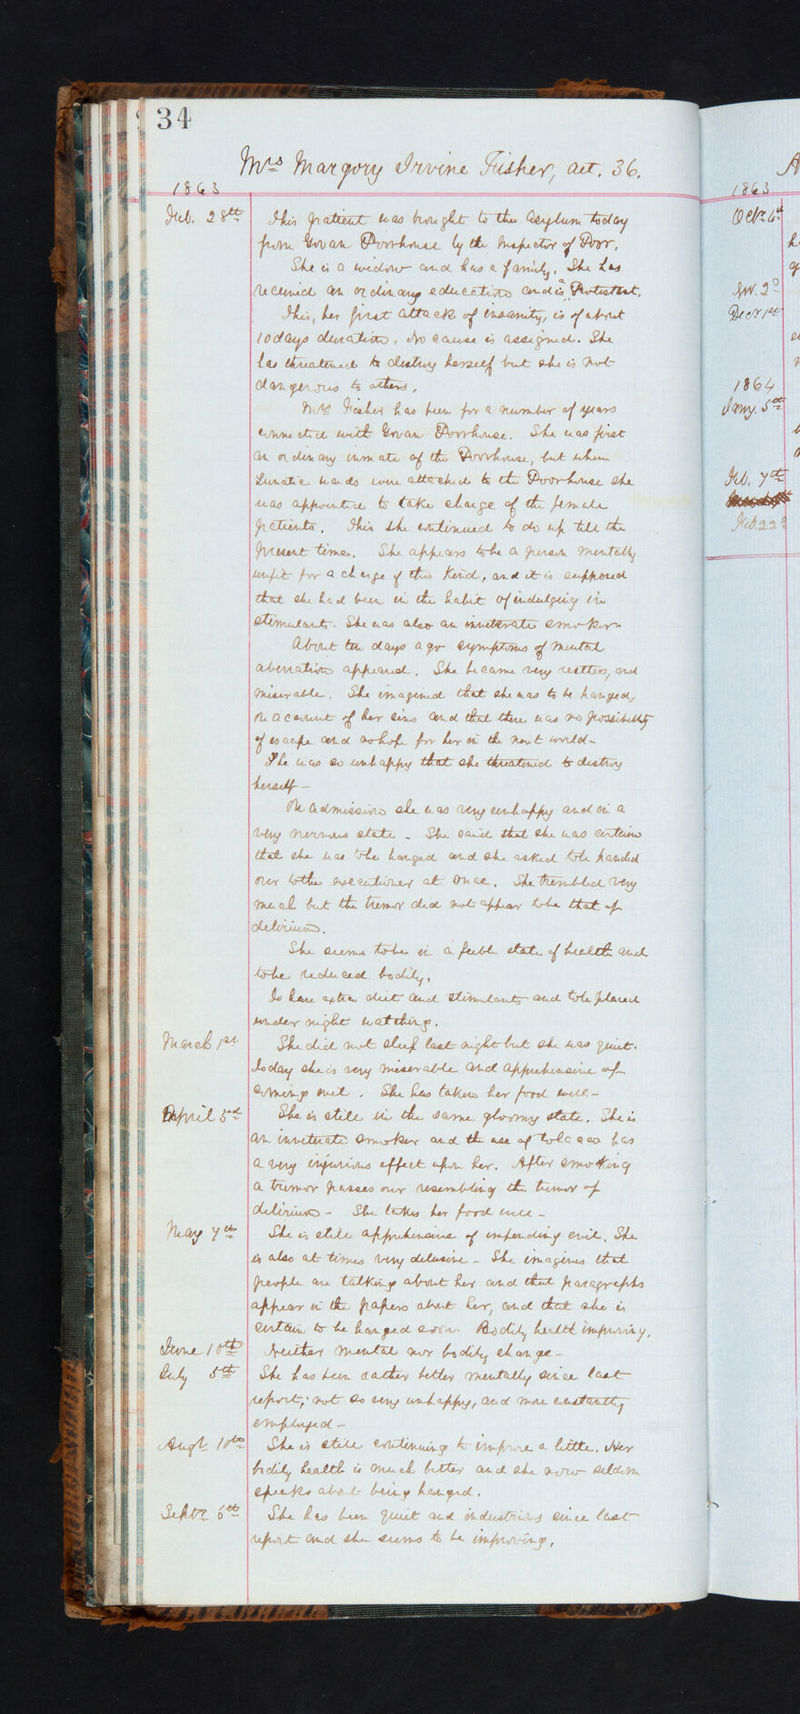 34
Mrs Margory Irvine Fisher, aet. 36.
1863
Feb. 28th This patient was brought to the Asylum today
from Govan Poorhouse by the Inspector of Poor.
She is a widow and has a family. She has
received an ordinary education and is a Protestant.
This, her first attack of insanity, is of about
10 days duration. No cause is assigned. She
has threatened to destroy herself but she is not
dangerous to others.
Mrs Fisher has been for a number of years
connected with Govan Poorhouse. She was first
an ordinary inmate of the Poorhouse, but when
Lunatic wards were attached to the Poorhouse she
was appointed to take charge of the female
patients. This she continued to do up till the
present time. She appears to be a person mentally
unfit for a charge of this kind, and it is supposed
that she had been in the habit of indulging in
stimulants. She was also an inveterate smoker.
About ten days ago symptoms of mental
aberration appeared. She became very restless, and
miserable. She imagined that she was to be hanged,
on account of her sins and that there was no possibility
of escape and no hope for her in the next world -
She was so unhappy that she threatened to destroy
herself -
On admission she was very unhappy and in a
very nervous state - She said that she was certain
that she was to be hanged and she asked to be handed
over to the executioner at once. She trembled very
much but the tremor did not appear to be that of
delirium.
She seems to be in a feeble state of health and
to be reduced bodily.
To have extra diet and stimulants and to be placed
under night watching.
March 1st She did not sleep last night but she was quiet.
Today she is very miserable and apprehensive of
coming evil. She has taken her food well -
April 5th She is still in the same gloomy state. She is
an inveterate smoker and the use of tobacco has
a very injurious effect upon her. After smoking
a tremor passes over resembling the tremor of
delirium - She takes her food well -
May 7th She is still apprehensive of impending evil. She
is also at times very delusive - She imagines that
people are talking about her and that paragraphs
appear in the papers about her, and that she is
certain to be hanged soon. Bodily health improving.
June 10th Neither mental nor bodily change -
July 5th She has been rather better mentally since last
report; not so very unhappy, and more constantly
employed -
Augt 10th She is still continuing to improve a little. Her
bodily health is much better and she now seldom
speaks about being hanged.
Septr 6th She has been quiet and industrious since last
report and she seems to be improving.
1863
Octr 4th
Nov. 2d
Decr 1st
1864
Jany. 5th
Feb. 7th
Feb 22d